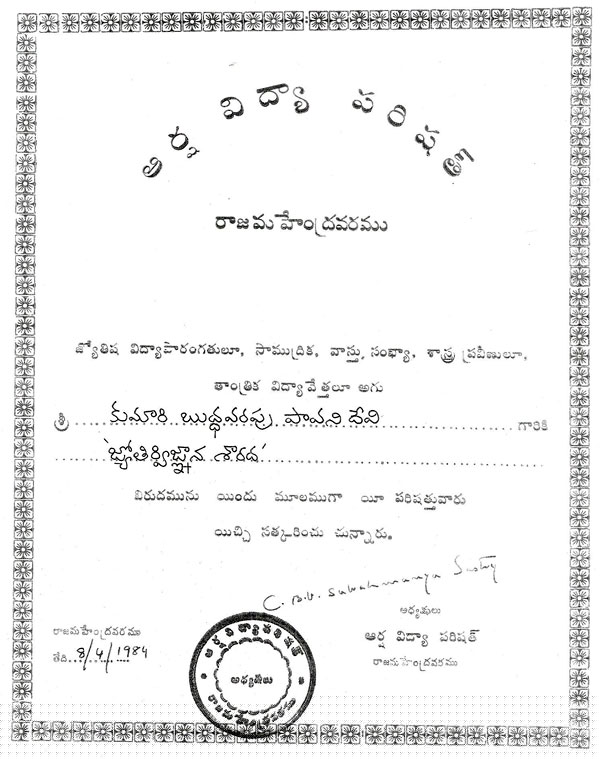 ఆర్ష విద్యా పరిషత్
రాజమహేంద్రవరము
జ్యోతిష విద్యాపారంగతులూ, సాముద్రిక, వాస్తు సంఖ్యా, శాస్త్ర ప్రవీణులూ,
తాంత్రిక విద్యావేత్తలూ అగు
శ్రీ ..... కుమారి బుద్ధవరపు పావని దేవి ..... గారికి
'జ్యోతిర్విజ్ఞాన శారద'
బిరుదమును యిందు మూలముగా యీ పరిషత్తువారు
యిచ్చి సత్కరించు చున్నారు.
C. B. V. Subrahmanya Sastry
అధ్యక్షులు
ఆర్ష విద్యా పరిషత్
రాజమహేంద్రవరము
రాజమహేంద్రవరము
తేది. 8/4/1984
ఆర్ష విద్యాపరిషత్
అధ్యక్షులు
రాజమహేంద్రవరము